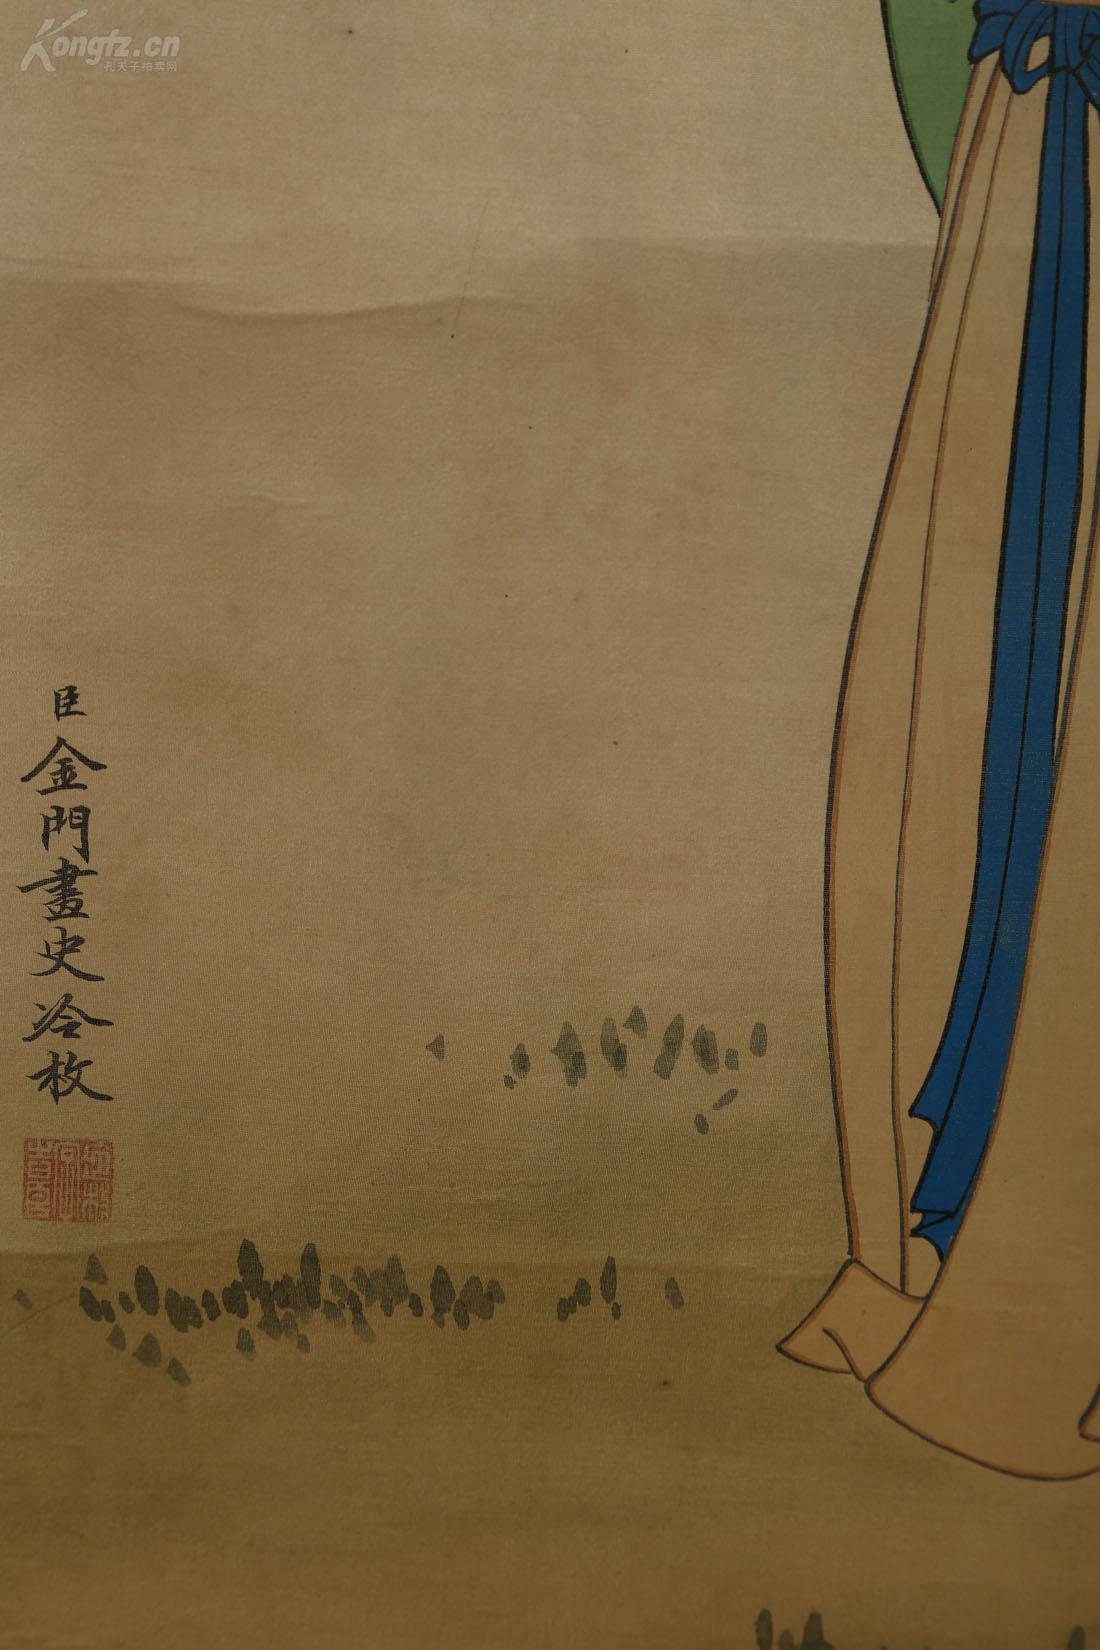 Kongfz.cn
孔夫子拍卖网
臣金門畫史冷枚